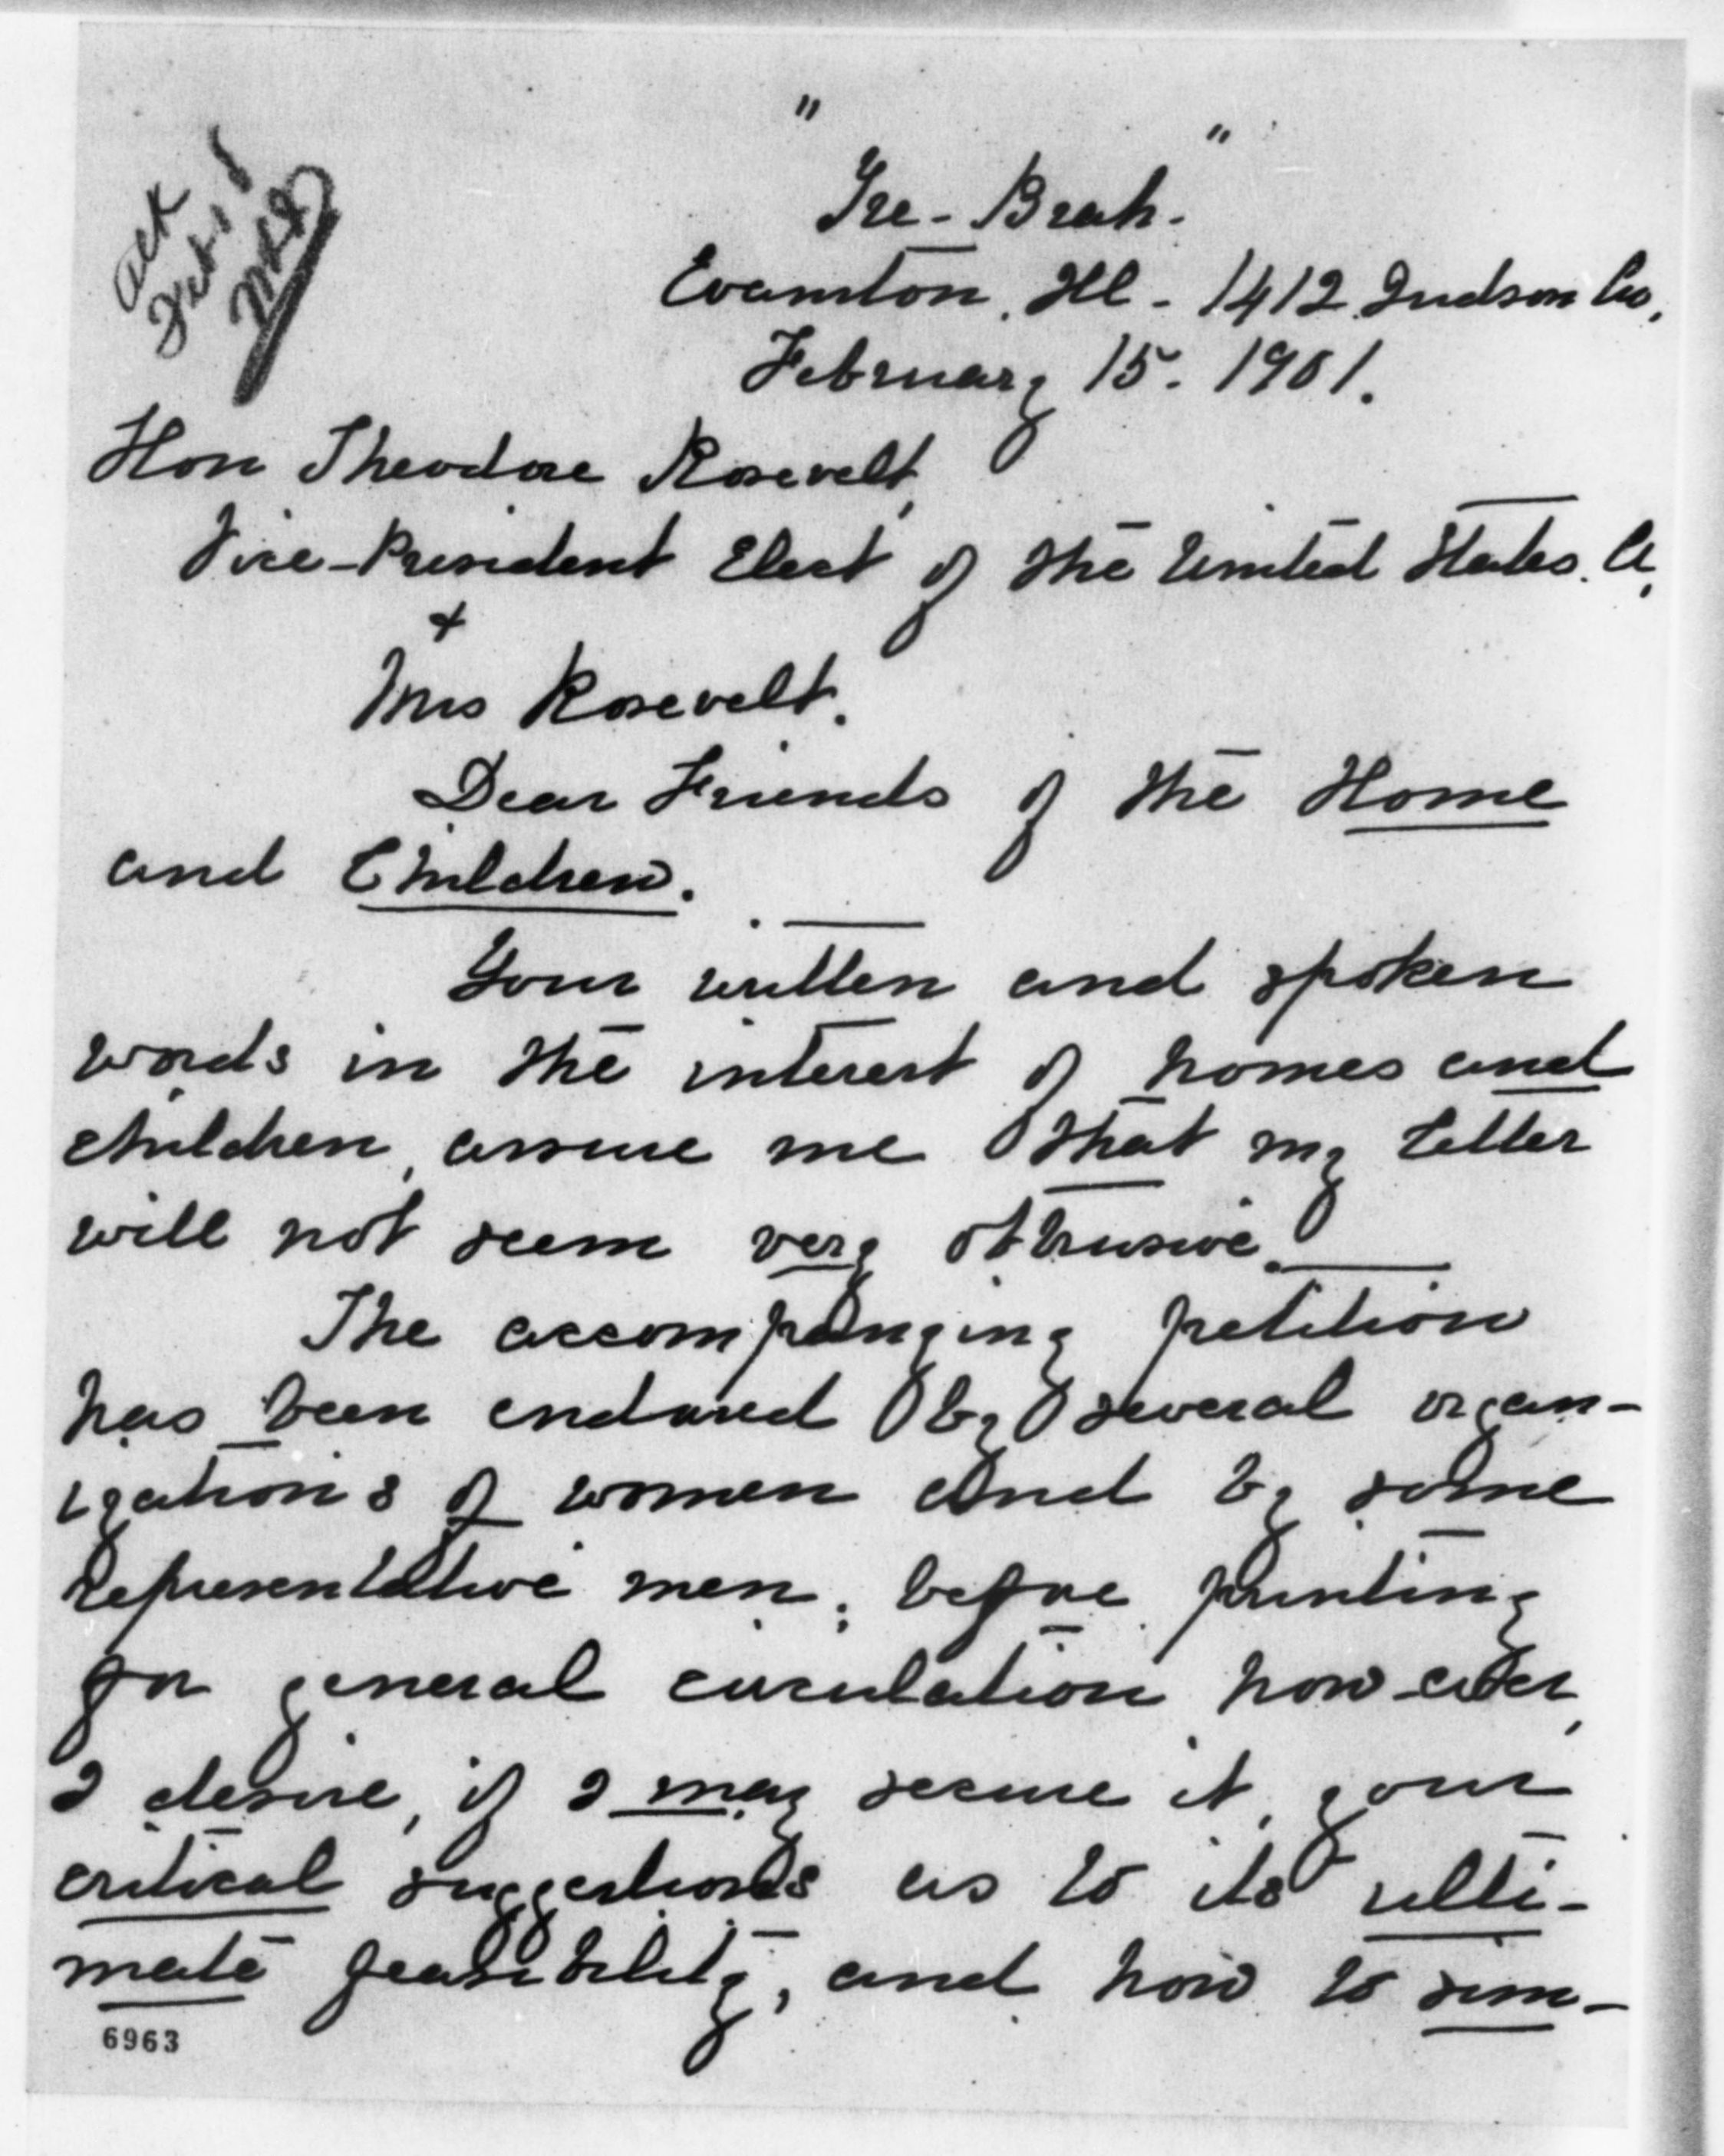 Ack
Feb 18
"Tre-Brah."
Evanston, Ill - 1412 Judson Av,
February 15. 1901.
Hon Theodore Rosevelt,
Vice-President Elect of the United States. A,
+
Mrs Rosevelt.
Dear Friends of the Home
and Children.
Your written and spoken
words in the interest of homes and
children, assure me that my letter
will not seem very obtrusive.
The accompanying petition
has been endorsed by several organ-
izations of women and by some
representative men; before printing
for general circulation how-ever,
I desire, if I may secure it, your
critical suggestions as to its ulti-
mate feasibility, and how to sim-
6963